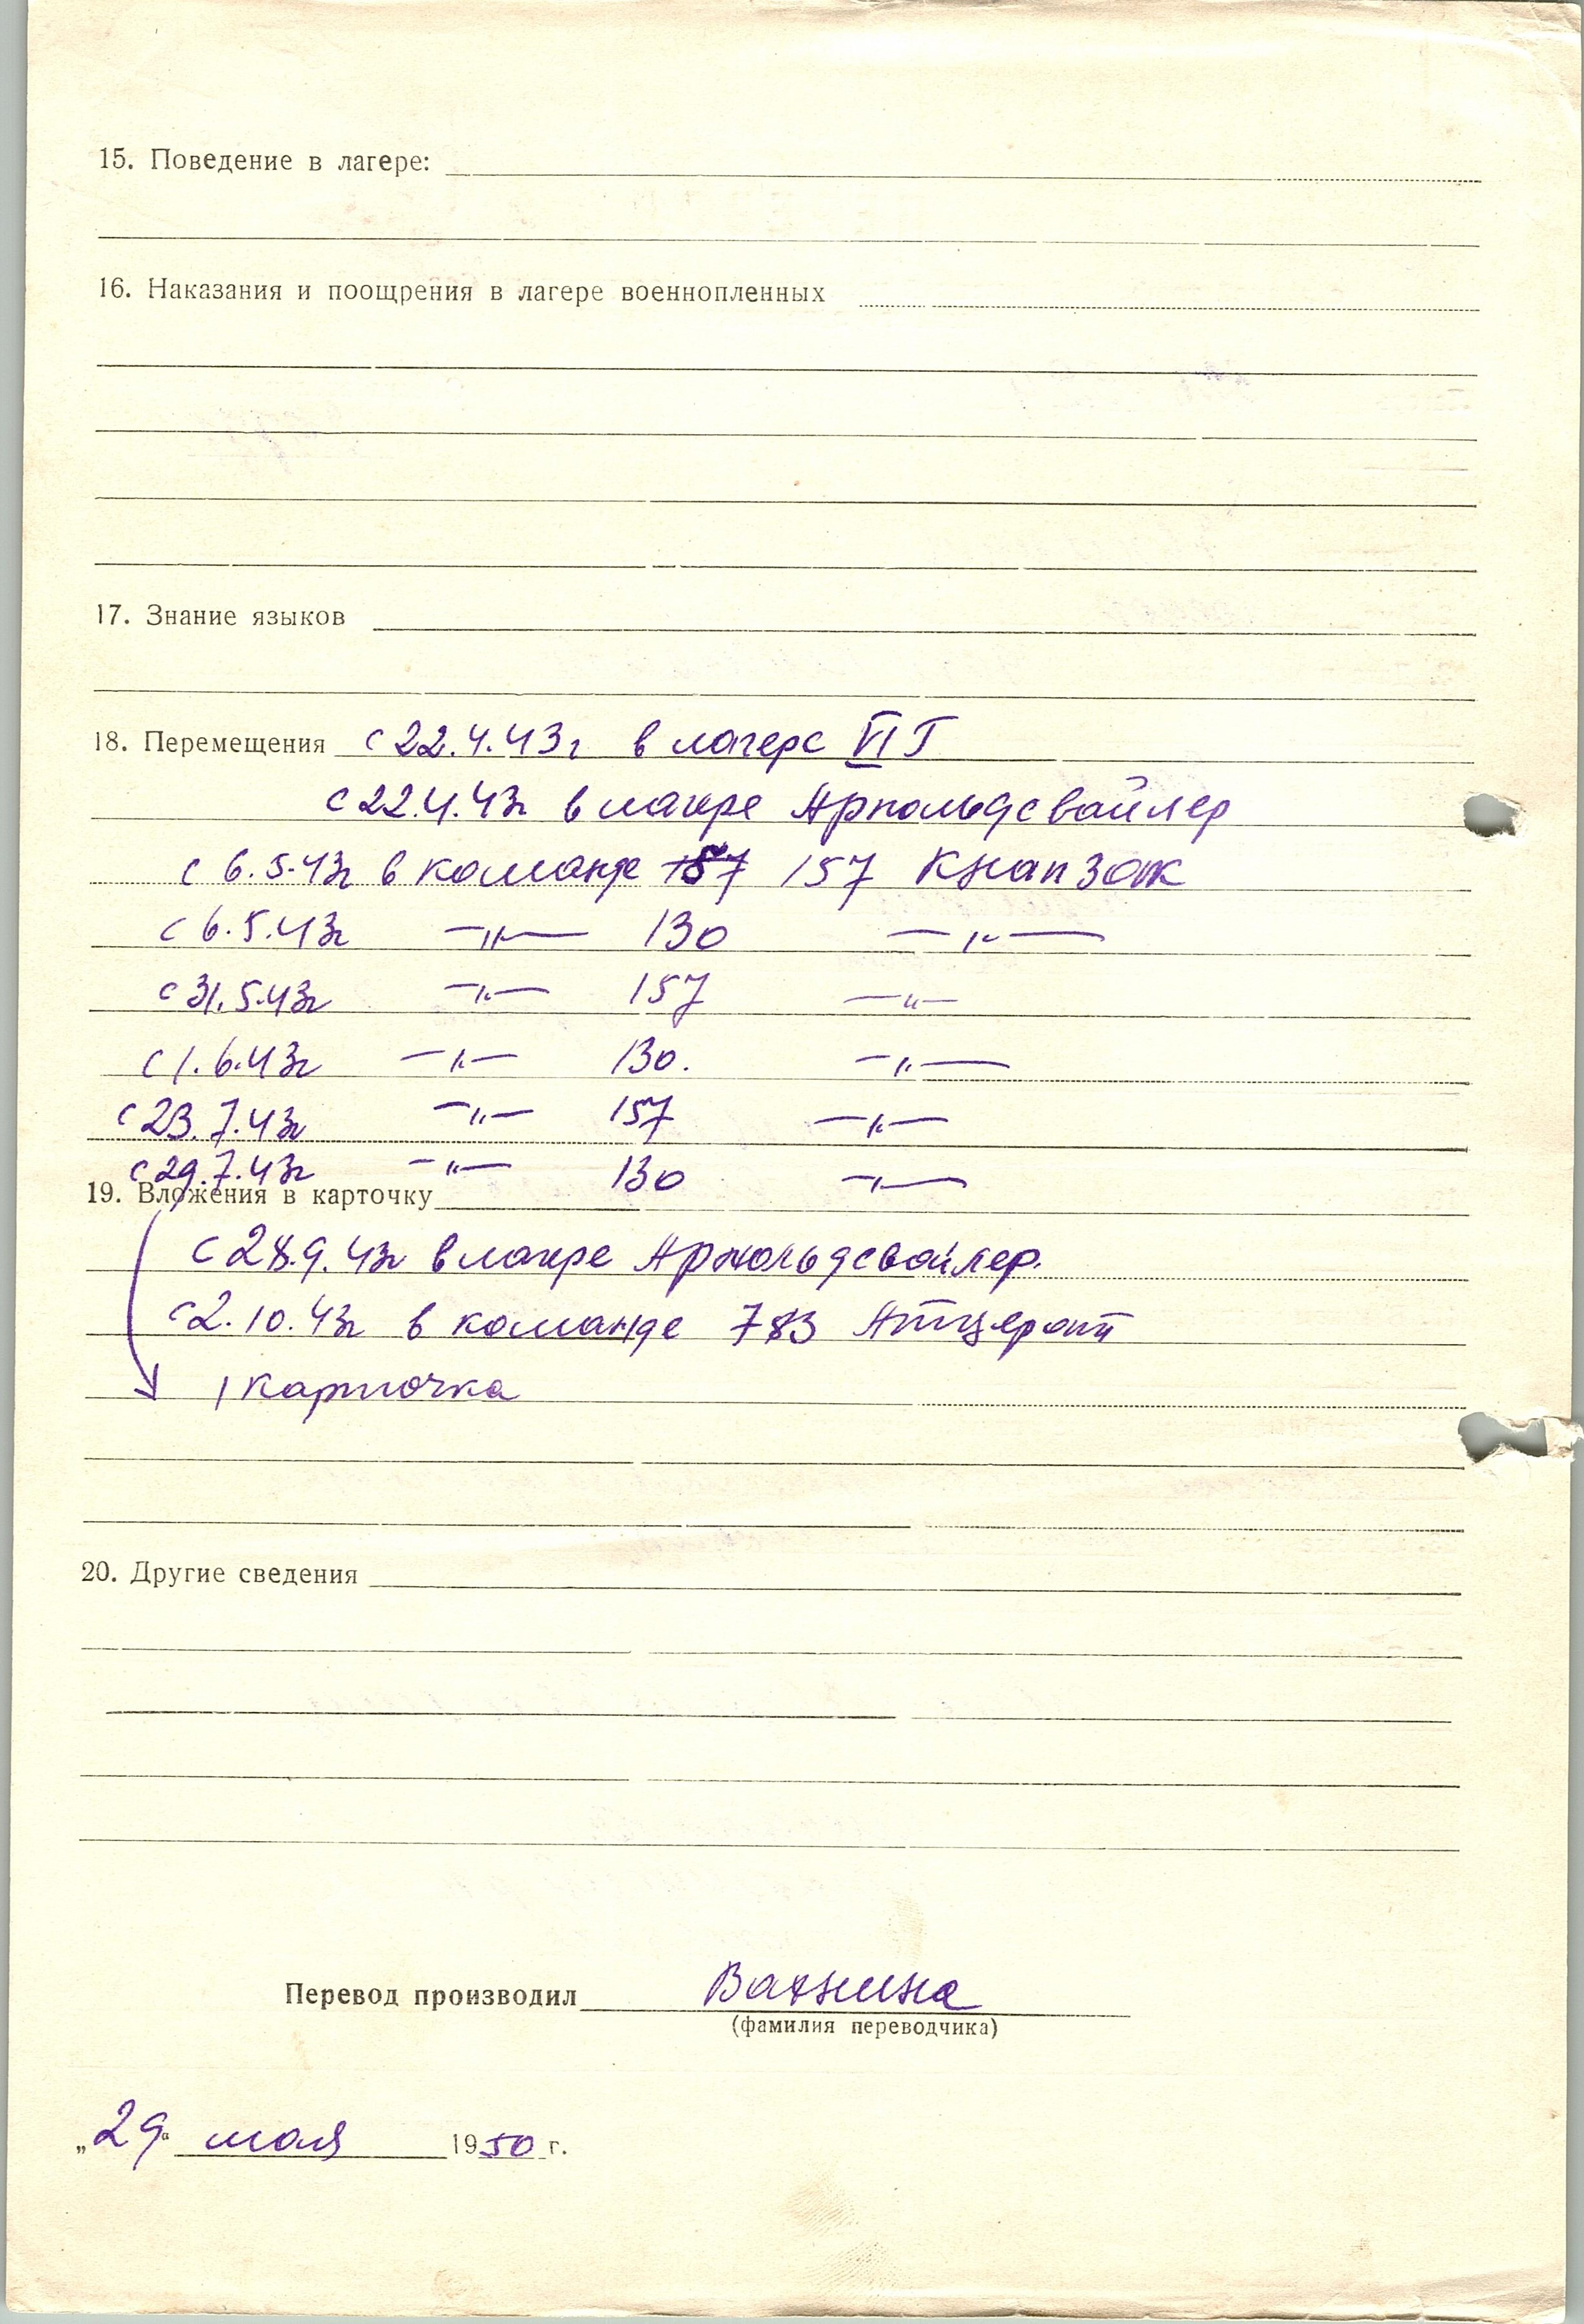 15. Поведение в лагере:
16. Наказания и поощрения в лагере военнопленных
17. Знание языков
18. Перемещения с 22.4.43г в лагере VI Г
с 22.4.43г в лагре Арнольдсвайлер
с 6.5.43г в команде 157 Кнапзак
с 6.5.43г —"— 130 —"—
с 31.5.43г —"— 157 —"—
с 1.6.43г —"— 130. —"—
с 23.7.43г —"— 157 —"—
с 29.7.43г —"— 130 —"—
19. Вложения в карточку
с 28.9.43г в лагре Арнольдсвайлер.
с 2.10.43г в команде
1 карточка
20. Другие сведения
Перевод производил
(фамилия переводчика)
„29“ мая 1950 г.